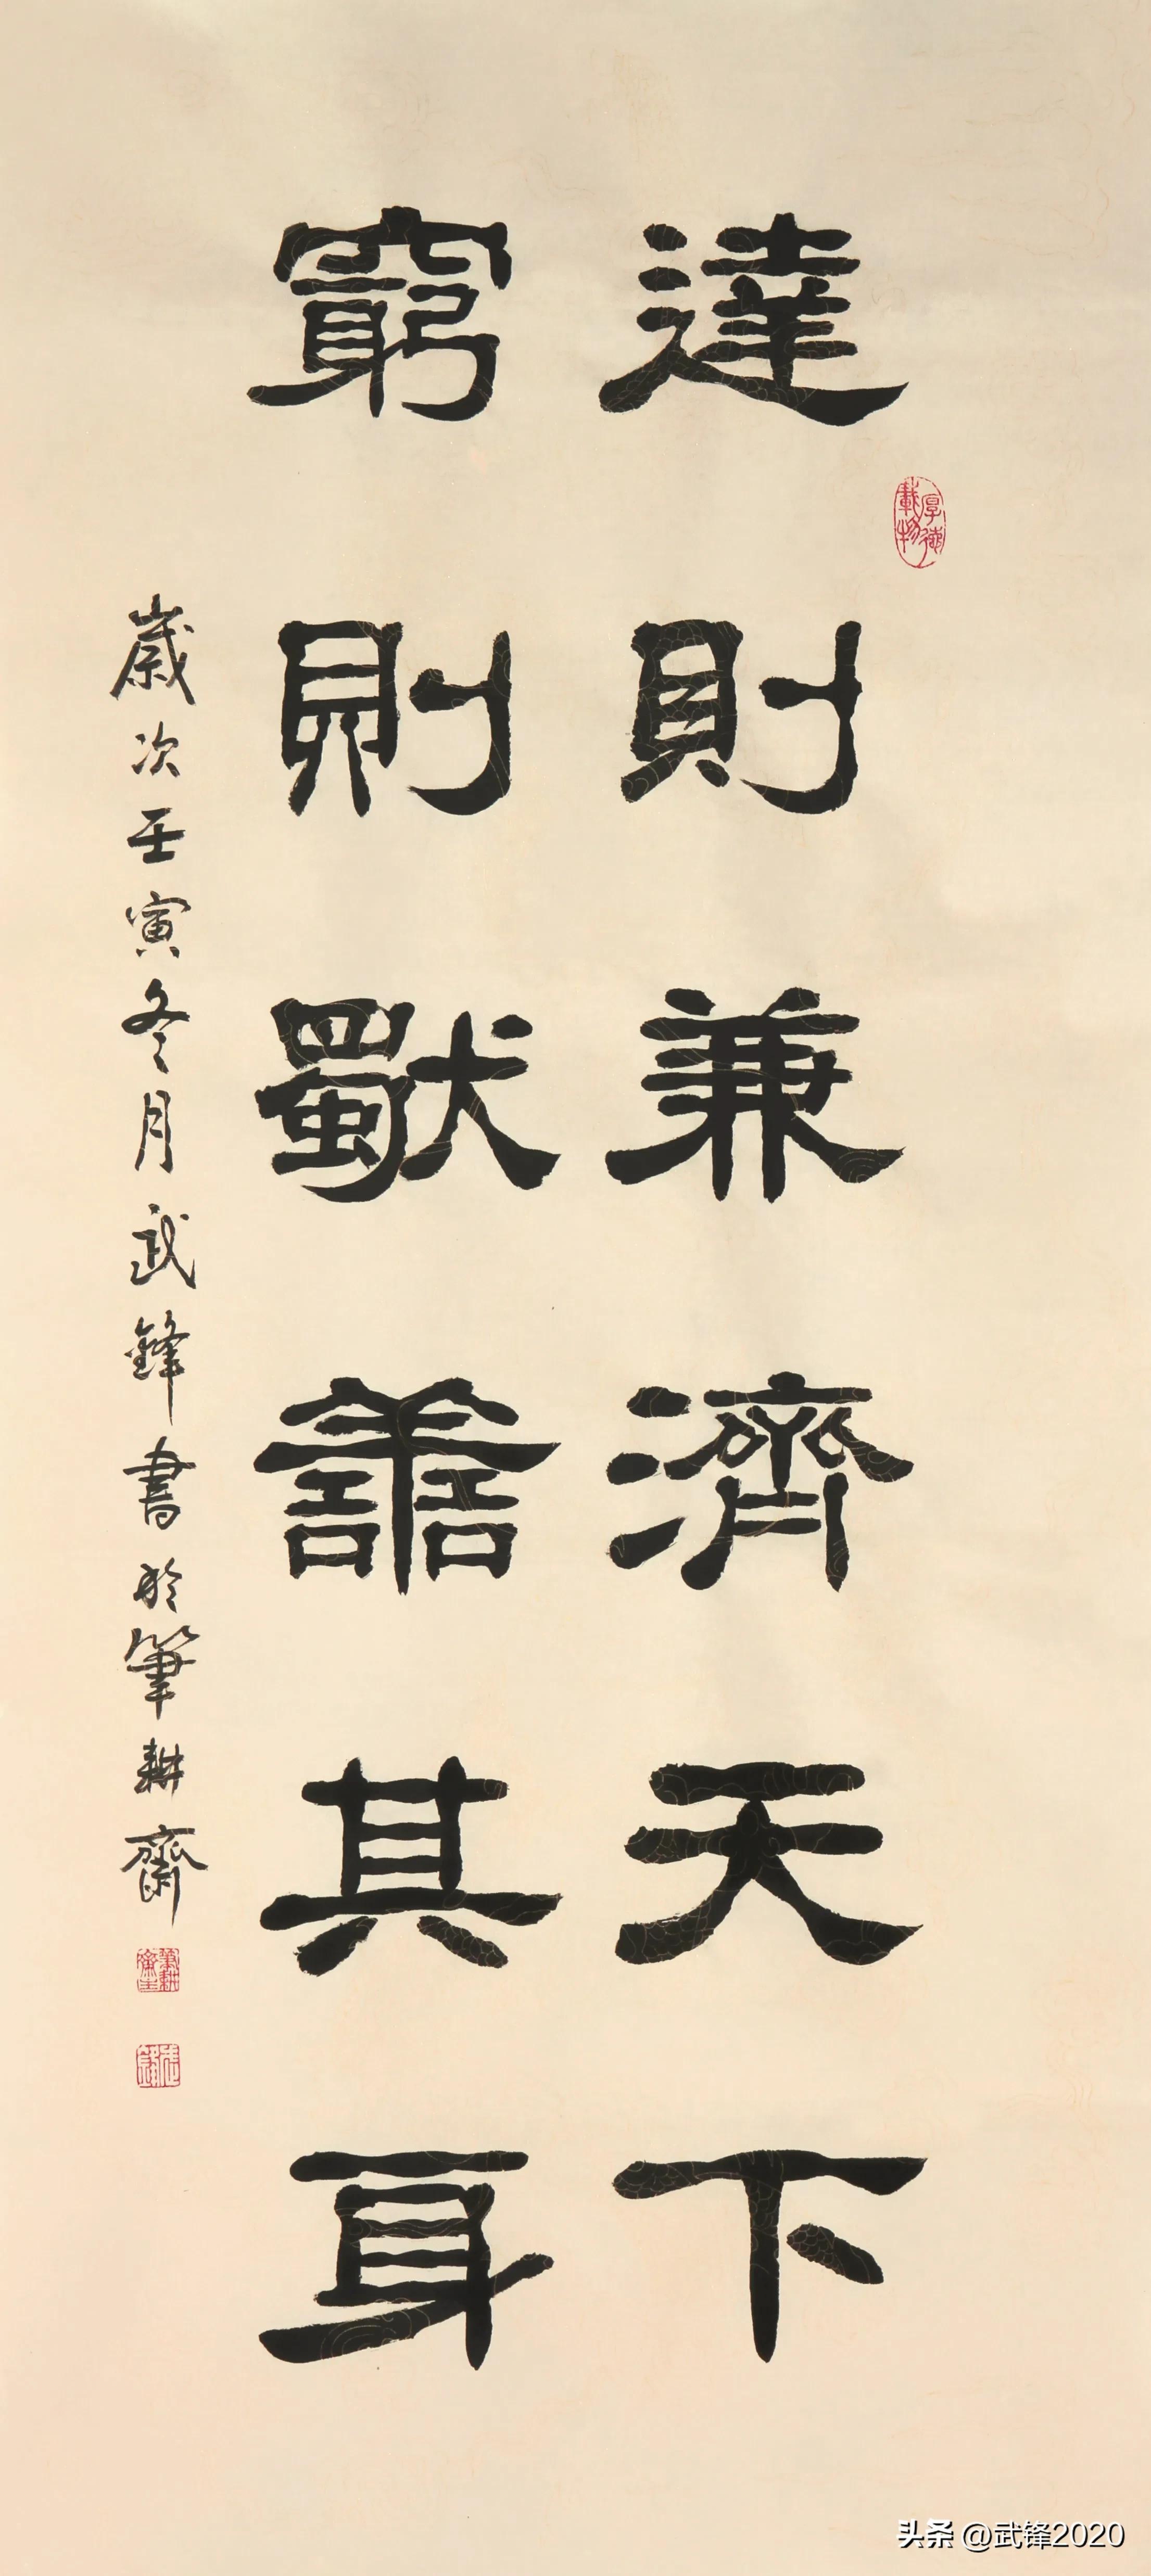 達則兼濟天下
窮則獨善其身
歲次壬寅冬月武鋒書於筆耕齋
厚德載物
头条 @武锋2020